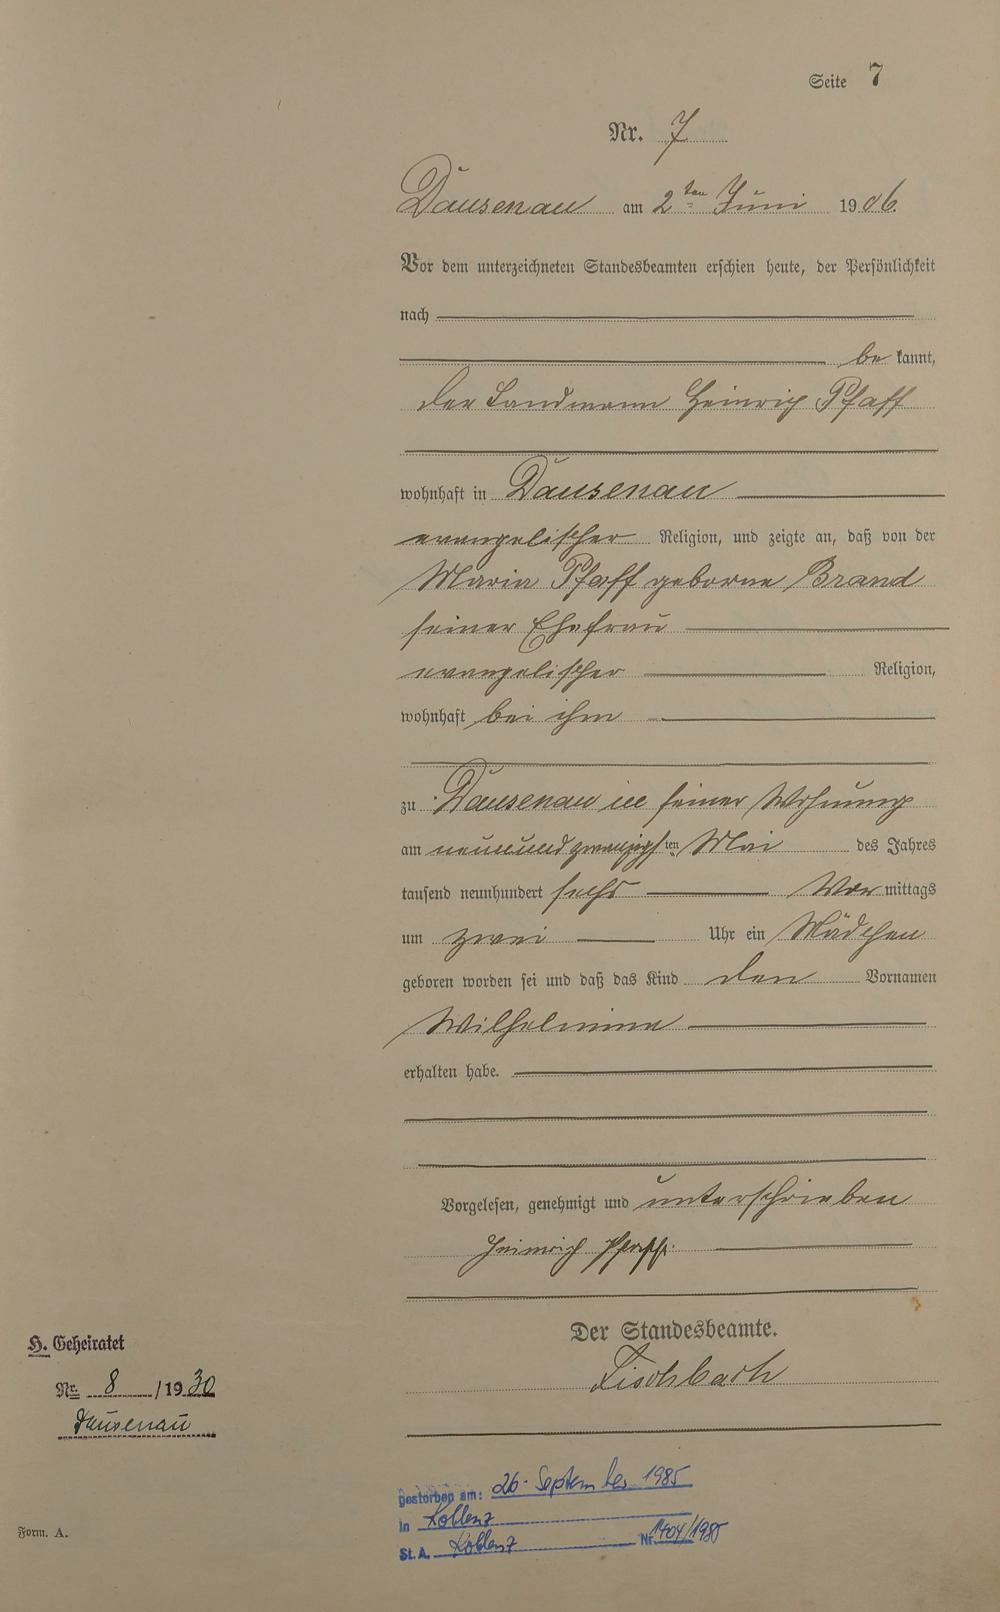 Seite 7
Nr. 7
Dausenau am 2ten Juni 1906.
Vor dem unterzeichneten Standesbeamten erschien heute, der Persönlichkeit
nach
be kannt,
der Landmann Heinrich Pfaff
wohnhaft in Dausenau
evangelischer Religion, und zeigte an, daß von der
Maria Pfaff geborne Brand
seiner Ehefrau
evangelischer Religion,
wohnhaft bei ihm
zu Dausenau in seiner Wohnung
am neunundzwanzigsten Mai des Jahres
tausend neunhundert sechs Vormittags
um zwei Uhr ein Mädchen
geboren worden sei und daß das Kind den Vornamen
Wilhelmine
erhalten habe.
Vorgelesen, genehmigt und unterschrieben
Heinrich Pfaff.
Der Standesbeamte.
Fischbach
H. Geheiratet
Nr. 8 /1930
Dausenau
gestorben am: 26. September 1985
in Koblenz
St. A. Koblenz Nr. 1404/1985
Form. A.